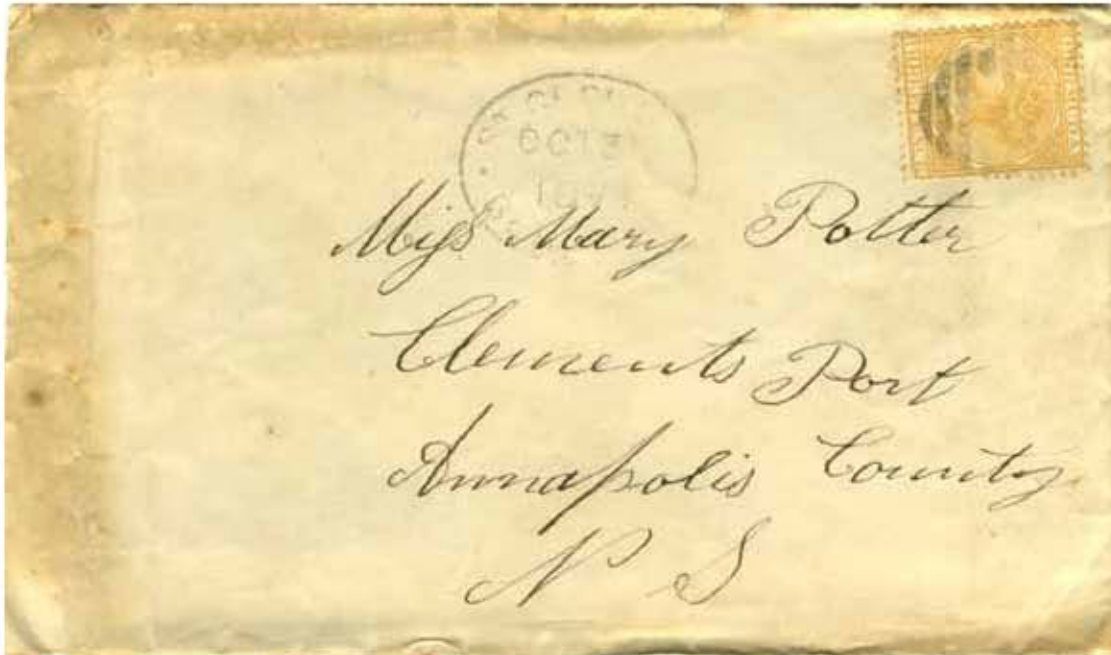 OCT 3
Miss Mary Potter
Clements Port
Annapolis County
N S